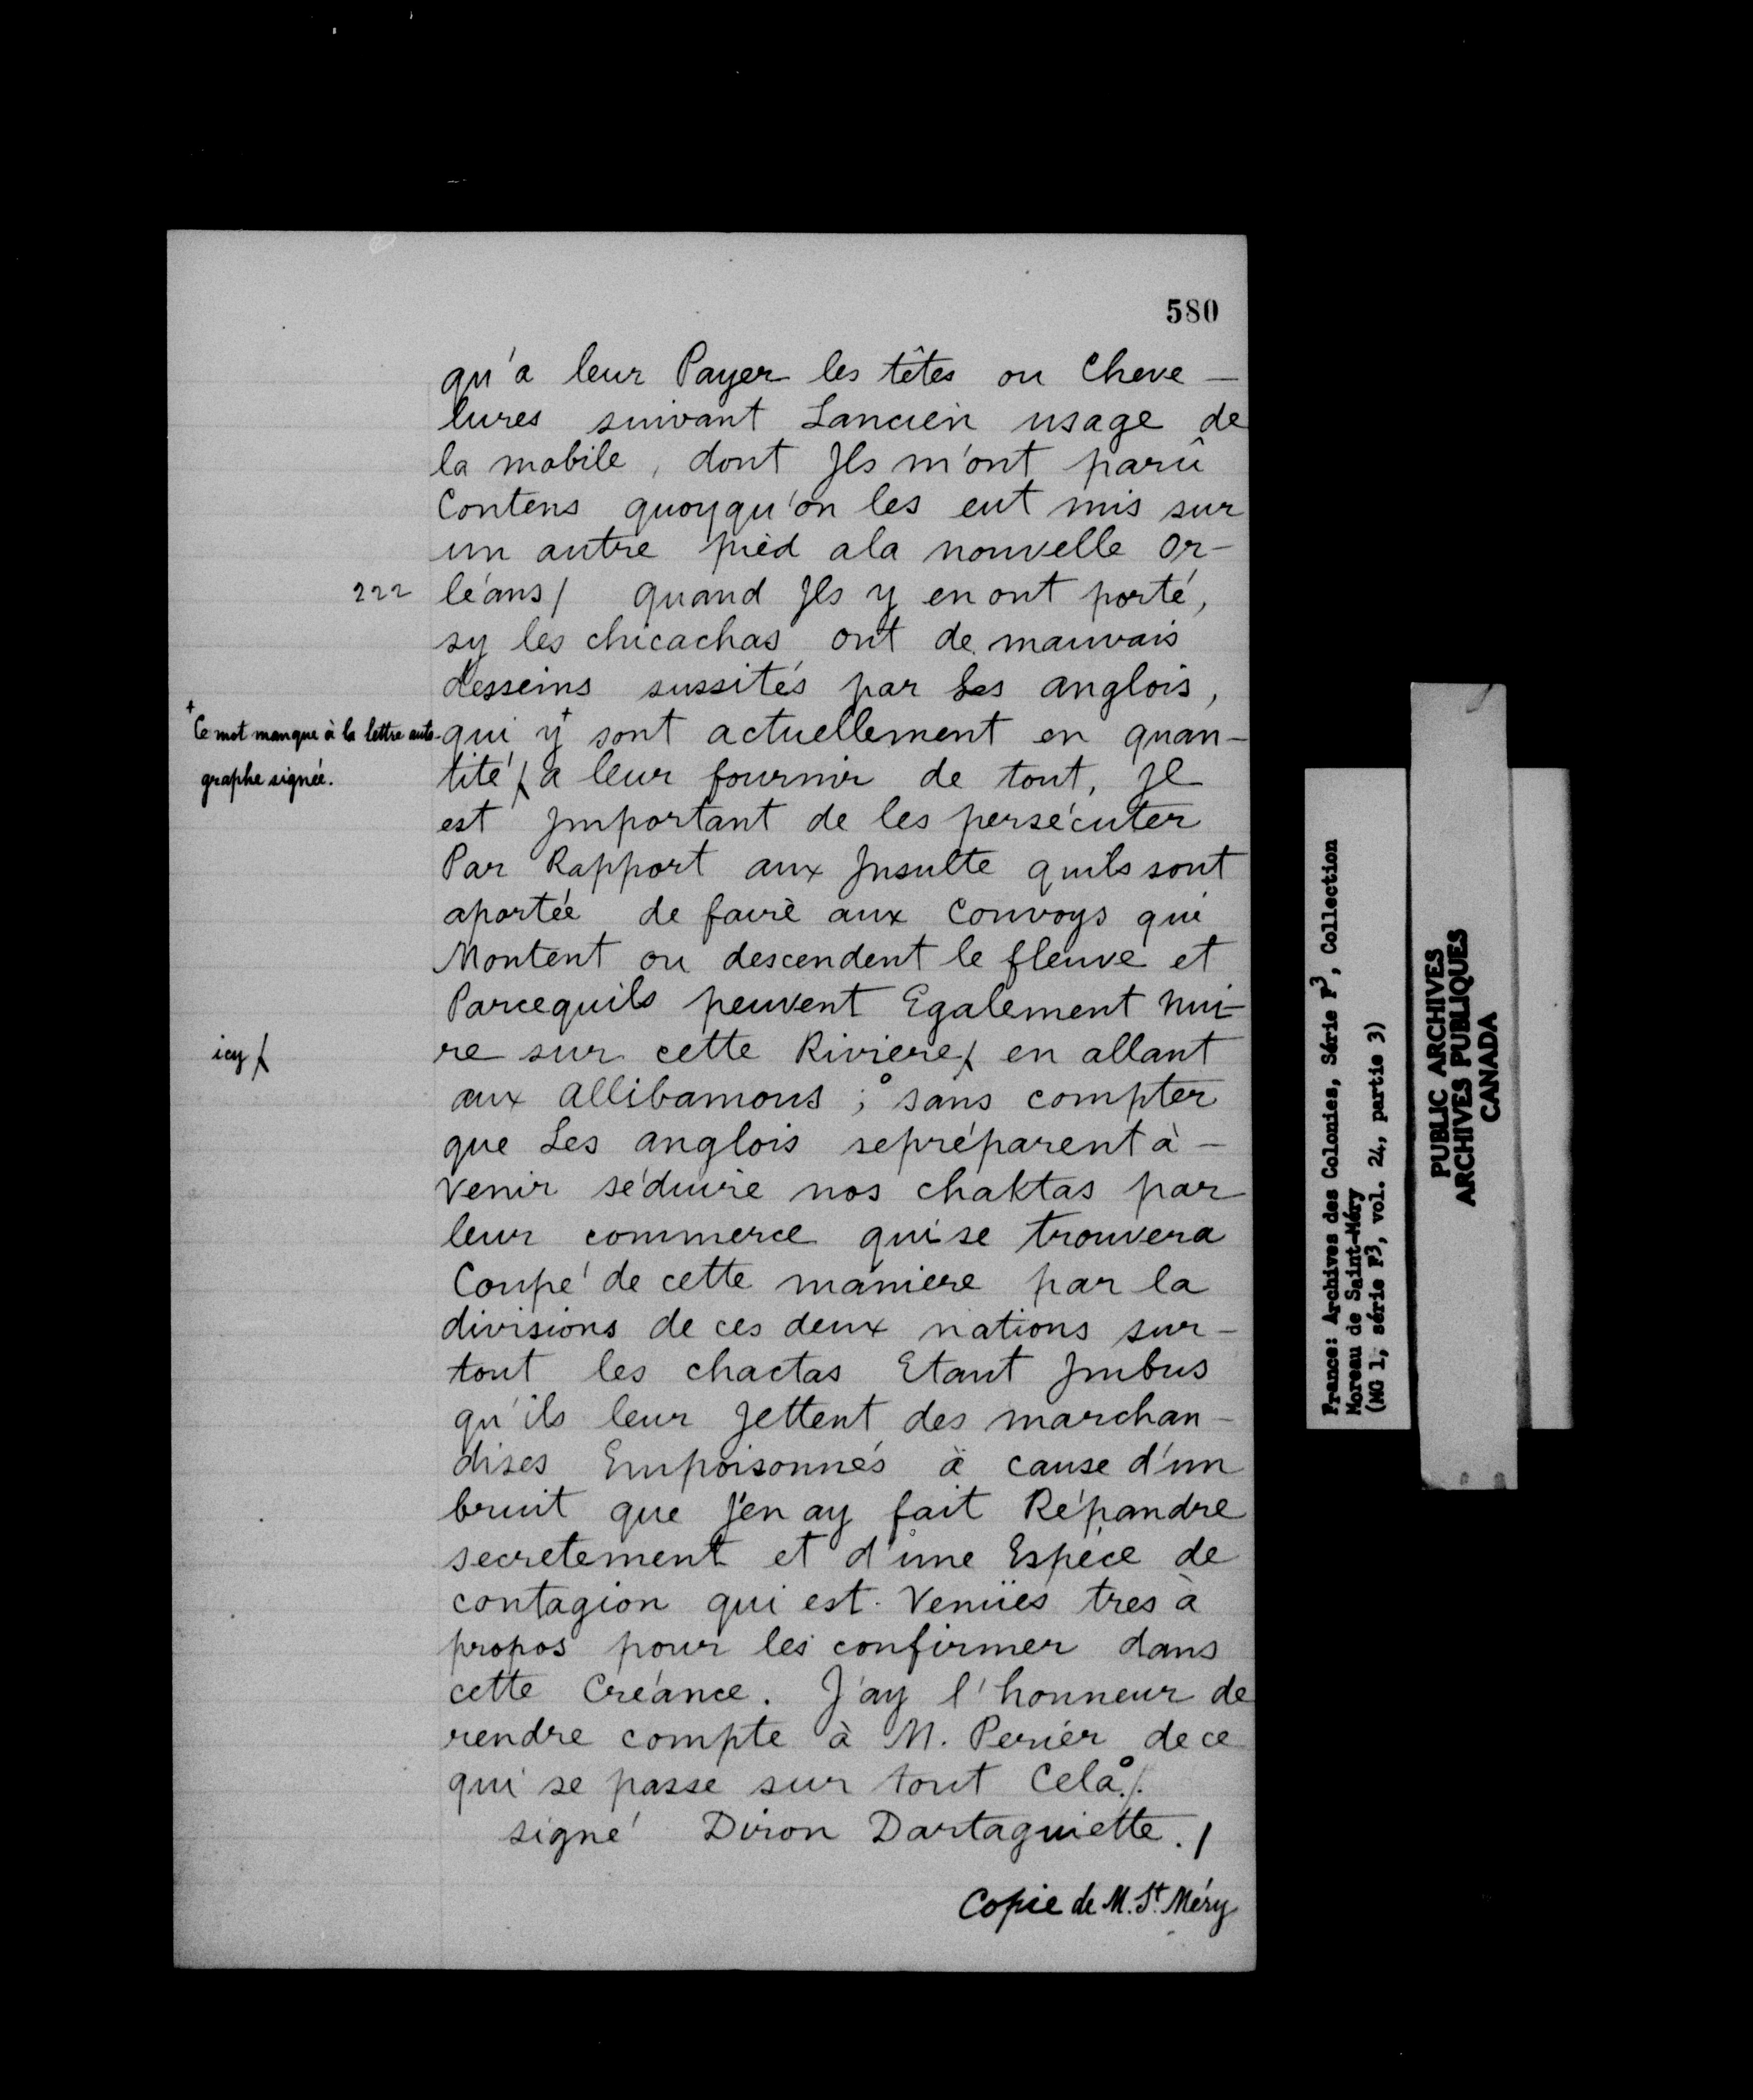 580
qu'a leur Payer les têtes ou Cheve-
lures suivant Lancien usage de
la mobile, dont Jls m'ont parû
Contens quoyqu'on les eut mis sur
un autre pièd ala nouvelle Or-
222 léans/ quand Jls y en ont porté,
sy les chicachas ont de mauvais
desseins sussités par Les anglois,
qui y+ sont actuellement en quan-
+ Ce mot manque à la lettre auto-
graphe signée.
tité/ a leur fournir de tout, Jl
est Jmportant de les persécuter
Par Rapport aux Jnsulte quils sont
aportée de faire aux Convoys qui
Montent ou descendent le fleuve et
Parcequils peuvent Egalement nui-
icy/ re sur cette Riviere/ en allant
aux allibamous ; sans compter
que Les anglois sepréparent à -
Venir séduire nos chaktas par
leur commerce qui se trouvera
Coupé de cette maniere par la
divisions de ces deux nations sur-
tout les chactas Etant Jmbus
qu'ils leur Jettent des marchan-
dises Empoisonnés à cause d'un
bruit que J'en ay fait Répandre
secretement et d'une Espéce de
contagion qui est Venües tres à
propos pour les confirmer dans
cette Créance. J'ay l'honneur de
rendre compte à M. Perier de ce
qui se passe sur tout Cela./.
signé Diron Dartaguiette./
Copie de M. St. Méry
France: Archives des Colonies, Série F3, Collection
Moreau de Saint-Méry
(MG 1, série F3, vol. 24, partie 3)
PUBLIC ARCHIVES
ARCHIVES PUBLIQUES
CANADA